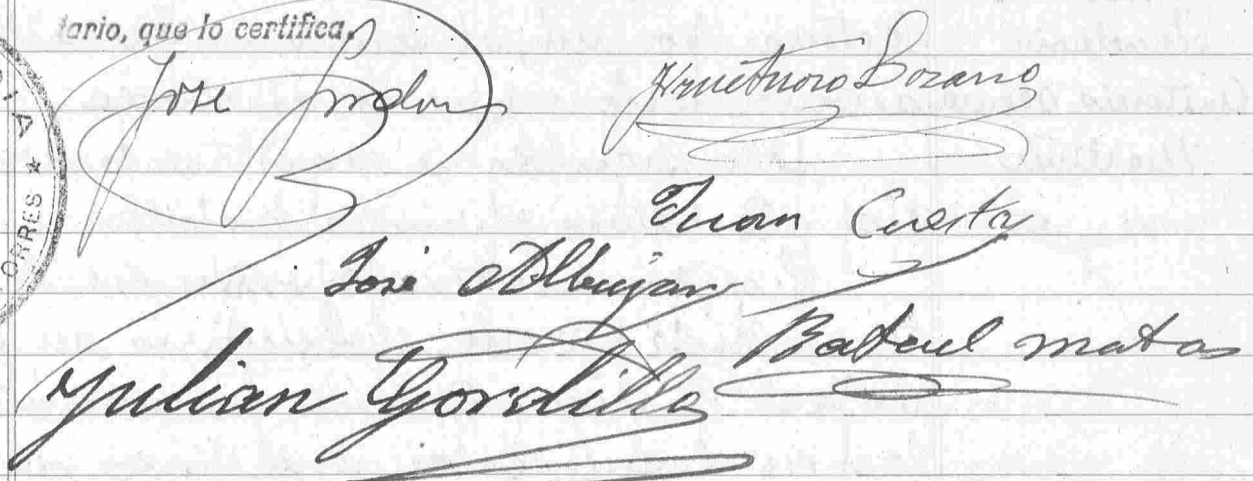 tario, que lo certifica.
José Gordon
Fructuoso Lozano
Juan Cuesta
José Albujar
Bataul matas
Julian Gordillo
ORRES *